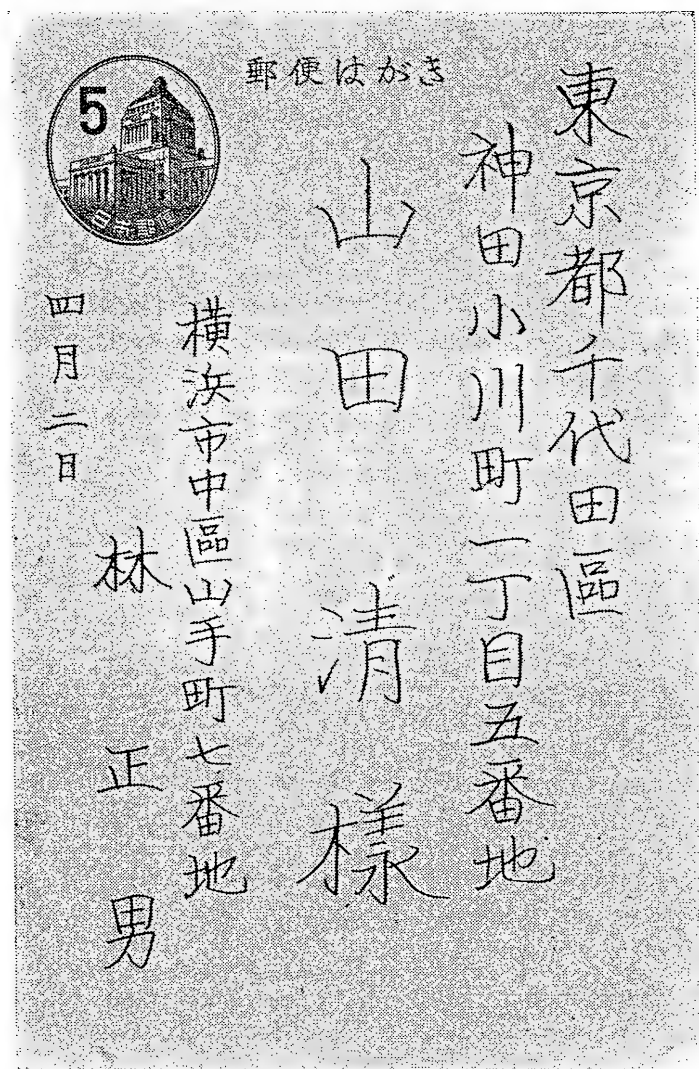 郵便はがき
5
東京都千代田區
神田小川町一丁目五番地
山田清樣
横浜市中區山手町七番地
林正男
四月二日